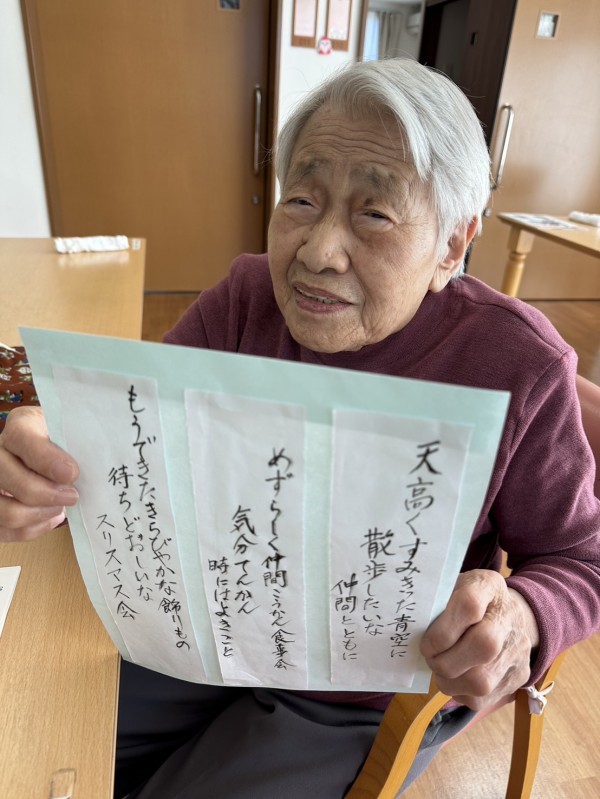 天高くすみきった青空に
散歩したいな
仲間とともに
めずらしく仲間こうかん食事会
気分てんかん
時にはよきこと
もうできたきらびやかな飾りもの
待ちどおしいな
スリスマス会